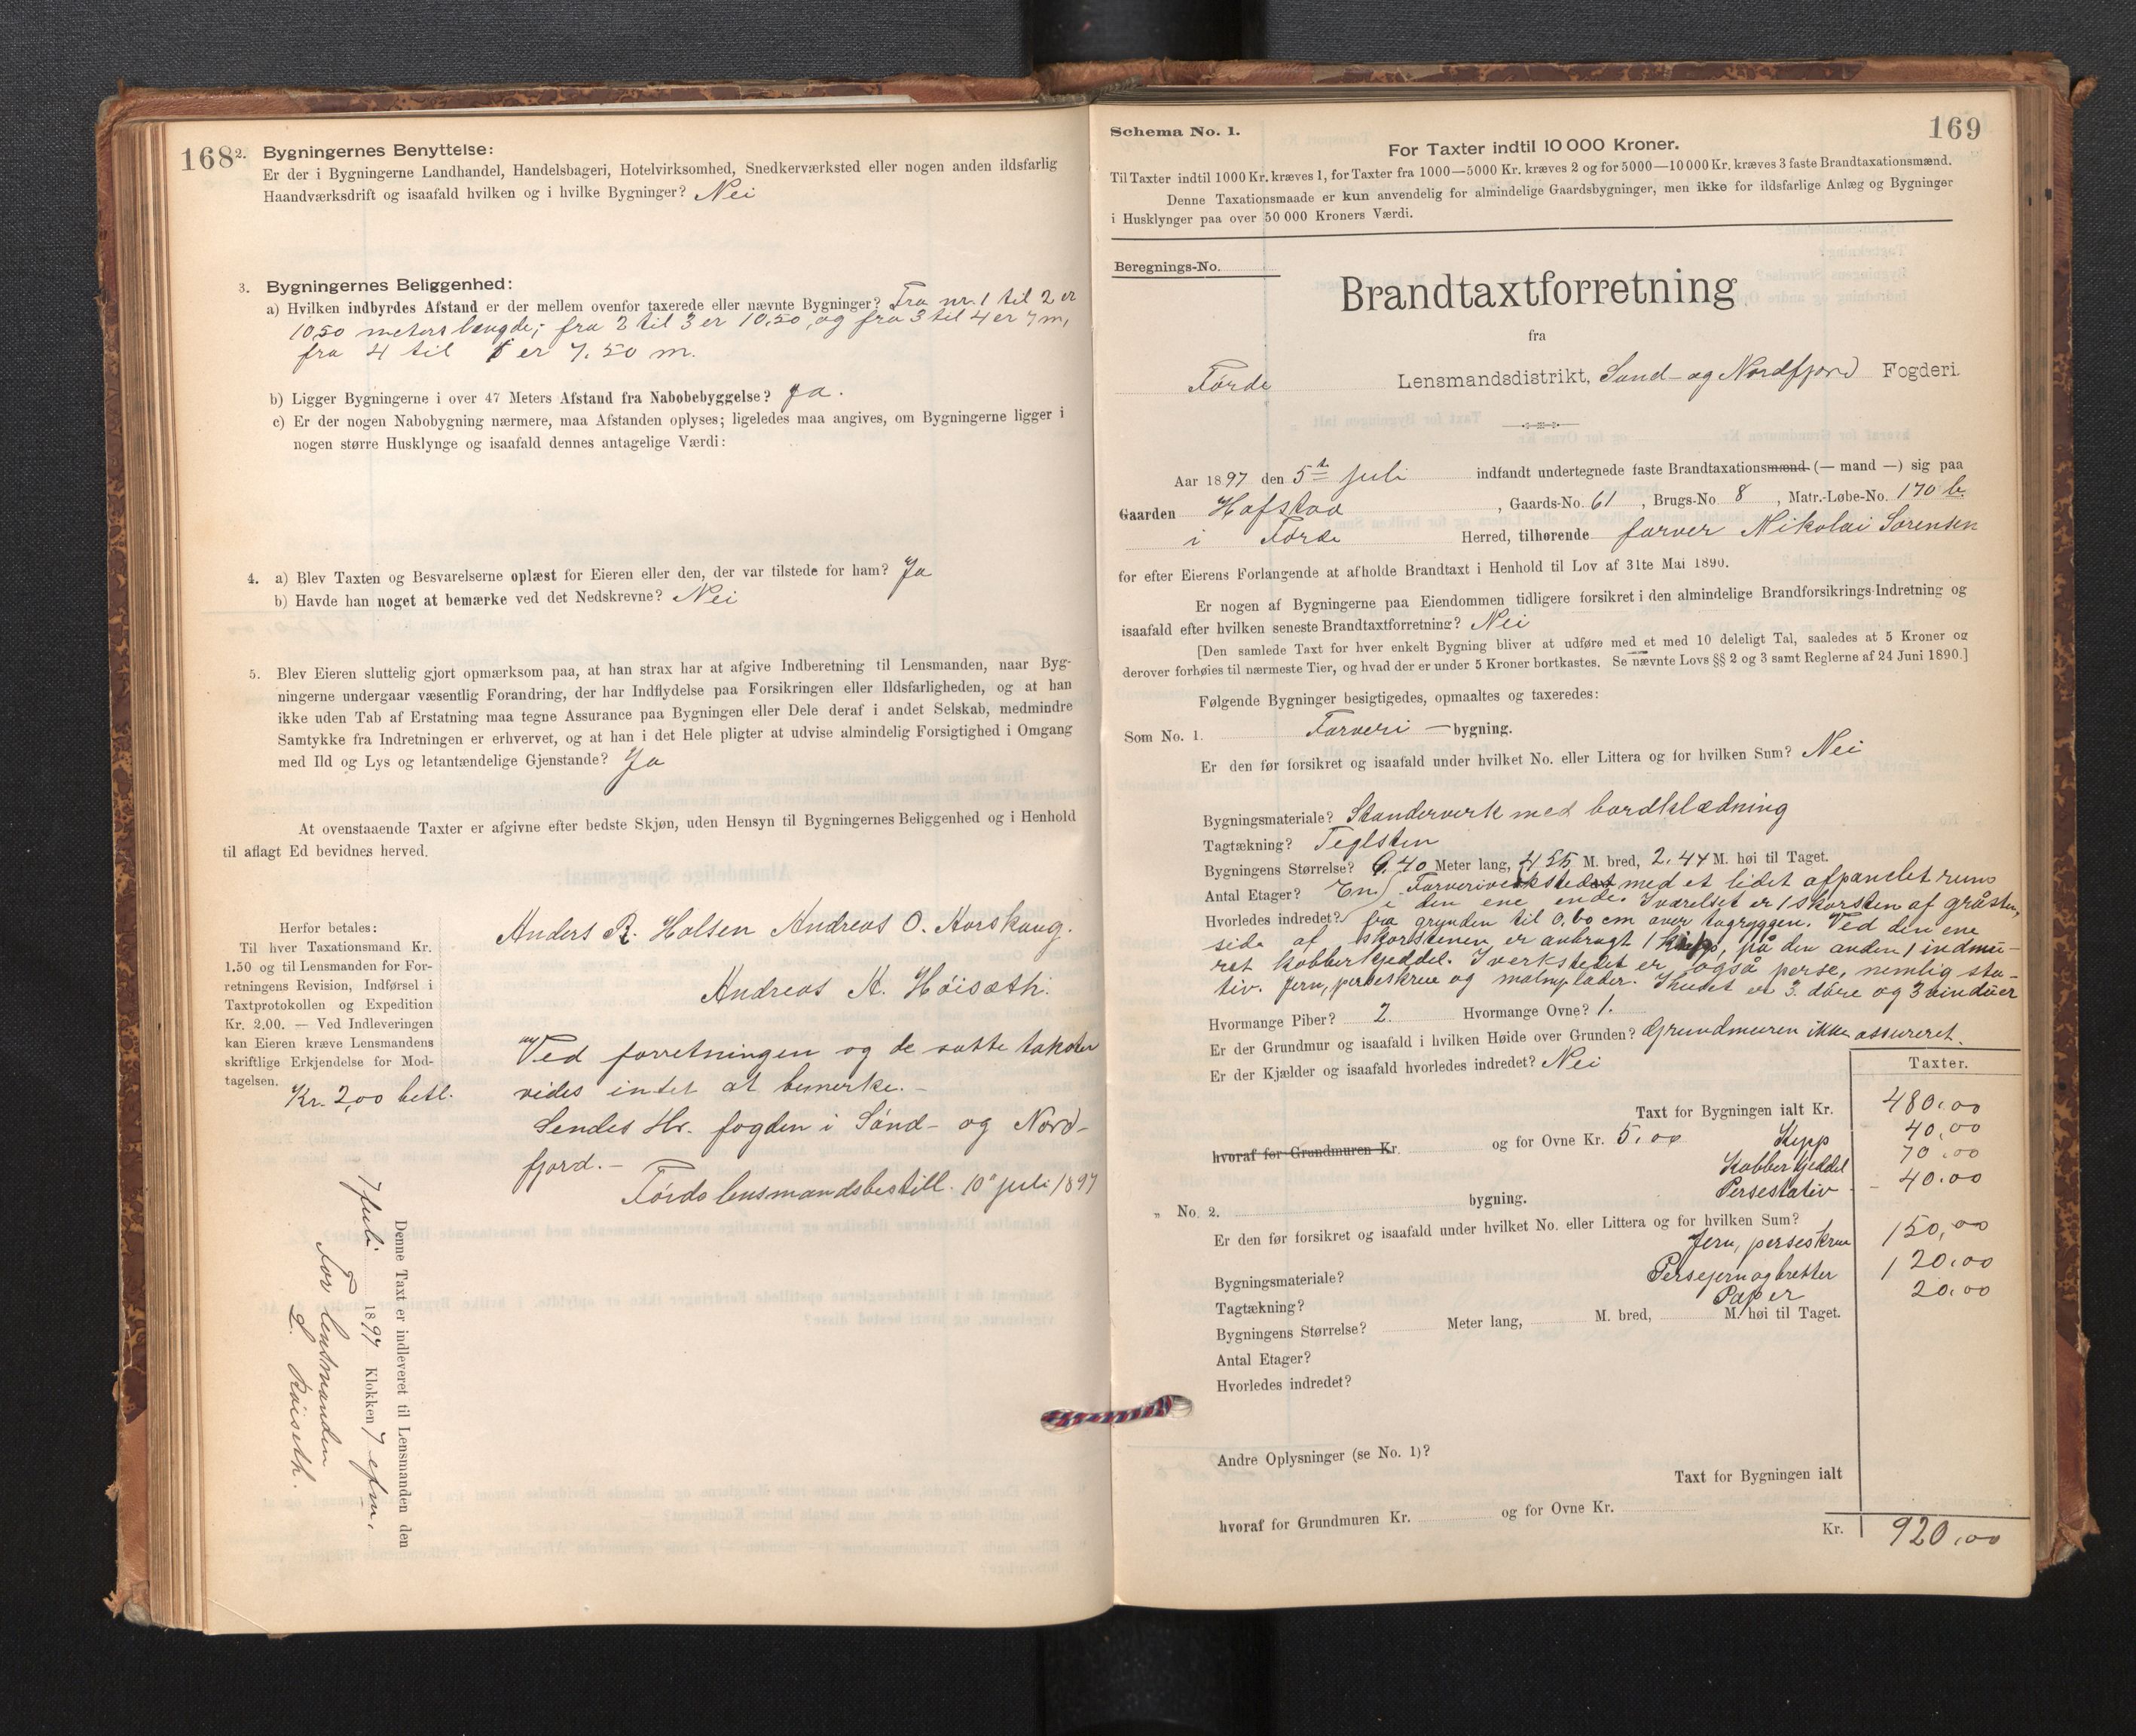 168
2. Bygningernes Benyttelse:
Er der i Bygningerne Landhandel, Handelsbageri, Hotelvirksomhed, Snedkerværksted eller nogen anden ildsfarlig
Haandværksdrift og isaafald hvilken og i hvilke Bygninger? Nei
3. Bygningernes Beliggenhed:
a) Hvilken indbyrdes Afstand er der mellem ovenfor taxerede eller nævnte Bygninger? Fra nr. 1 til 2 er
10,50 meters længde; fra 2 til 3 er 10,50, og fra 3 til 4 er 7 m,
fra 4 til er 7.50 m.
b) Ligger Bygningerne i over 47 Meters Afstand fra Nabobebyggelse? Ja.
c) Er der nogen Nabobygning nærmere, maa Afstanden oplyses; ligeledes maa angives, om Bygningerne ligger i
nogen større Husklynge og isaafald dennes antagelige Værdi:
4. a) Blev Taxten og Besvarelserne oplæst for Eieren eller den, der var tilstede for ham? Ja
b) Havde han noget at bemærke ved det Nedskrevne? Nei
5. Blev Eieren sluttelig gjort opmærksom paa, at han strax har at afgive Indberetning til Lensmanden, naar Byg-
ningerne undergaar væsentlig Forandring, der har Indflydelse paa Forsikringen eller Ildsfarligheden, og at han
ikke uden Tab af Erstatning maa tegne Assurance paa Bygningen eller Dele deraf i andet Selskab, medmindre
Samtykke fra Indretningen er erhvervet, og at han i det Hele pligter at udvise almindelig Forsigtighed i Omgang
med Ild og Lys og letantændelige Gjenstande? Ja
At ovenstaaende Taxter er afgivne efter bedste Skjøn, uden Hensyn til Bygningernes Beliggenhed og i Henhold
til aflagt Ed bevidnes herved.
Herfor betales:
Til hver Taxationsmand Kr.
1.50 og til Lensmanden for For-
retningens Revision, Indførsel i
Taxtprotokollen og Expedition
Kr. 2.00. — Ved Indleveringen
kan Eieren kræve Lensmandens
skriftlige Erkjendelse for Mod-
tagelsen.
Kr. 2,00 betl.
Anders R. Halsen Andreas O. Horskaug.
Andreas A. Høisæth.
Ved forretningen og de satte takster
vides intet at bemerke. -
Sendes Hr. fogden i Sønd- og Nord-
fjord. -
Førde lensmandsbestill. 10 juli 1897
Denne Taxt er indleveret til Lensmanden den
7 Juli 1897 Klokken 7 efm.
For lensmanden
L. Høiseth.
169
Schema No. 1.
For Taxter indtil 10 000 Kroner.
Til Taxter indtil 1000 Kr. kræves 1, for Taxter fra 1000—5000 Kr. kræves 2 og for 5000—10 000 Kr. kræves 3 faste Brandtaxationsmænd.
Denne Taxationsmaade er kun anvendelig for almindelige Gaardsbygninger, men ikke for ildsfarlige Anlæg og Bygninger
i Husklynger paa over 50 000 Kroners Værdi.
Beregnings-No.
Brandtaxtforretning
fra
Førde Lensmandsdistrikt, Sønd- og Nordfjord Fogderi.
Aar 1897 den 5te juli indfandt undertegnede faste Brandtaxationsmænd (— mand —) sig paa
Gaarden Hafstad, Gaards-No. 61, Brugs-No 8, Matr.-Løbe-No. 170 b.
i Førde Herred, tilhørende farver Nikolai Sørensen
for efter Eierens Forlangende at afholde Brandtaxt i Henhold til Lov af 31te Mai 1890.
Er nogen af Bygningerne paa Eiendommen tidligere forsikret i den almindelige Brandforsikrings-Indretning og
isaafald efter hvilken seneste Brandtaxtforretning? Nei
[Den samlede Taxt for hver enkelt Bygning bliver at udføre med et med 10 deleligt Tal, saaledes at 5 Kroner og
derover forhøies til nærmeste Tier, og hvad der er under 5 Kroner bortkastes. Se nævnte Lovs §§ 2 og 3 samt Reglerne af 24 Juni 1890.]
Følgende Bygninger besigtigedes, opmaaltes og taxeredes:
Som No. 1. Farveri — bygning.
Er den før forsikret og isaafald under hvilket No. eller Littera og for hvilken Sum? Nei
Bygningsmateriale? Standerverk med bordklædning
Tagtækning? Teglsten
Bygningens Størrelse? 9.40 Meter lang, 4.55 M. bred, 2.44 M. høi til Taget.
Antal Etager? En. Farveriverksted med et lidet afpanelet rum
i den ene ende. I værelset er 1 skorsten af gråsten,
Hvorledes indredet? fra grunden til 0,60 cm over tagryggen. Ved den ene
side af skorstenen er anbragt 1 kipp, på den anden 1 indmu-
ret kobberkjeddel. I verkstedet er også perse, nemlig sta-
tiv. jern, perseskrue og plader. I huset er 3 døre og 3 vinduer
Hvormange Piber? 2. Hvormange Ovne? 1.
Er der Grundmur og isaafald i hvilken Høide over Grunden? Grundmuren ikke assureret.
Er der Kjælder og isaafald hvorledes indredet? Nei
Taxter.
Taxt for Bygningen ialt Kr. 480.00
hvoraf for Grundmuren Kr. og for Ovne Kr. 5.00 Kipp 40,00
Kobberkjeddel 70.00
Persestativ 40.00
„ No. 2. bygning.
Er den før forsikret og isaafald under hvilket No. eller Littera og for hvilken Sum?
Jern, perseskrue 150,00
Bygningsmateriale? Persejern og bretter 120.00
Tagtækning? Paper 20.00
Bygningens Størrelse? Meter lang, M. bred, M. høi til Taget.
Antal Etager?
Hvorledes indredet?
Andre Oplysninger (se No. 1)?
Taxt for Bygningen ialt
hvoraf for Grundmuren Kr. og for Ovne Kr.
Kr. 920.00